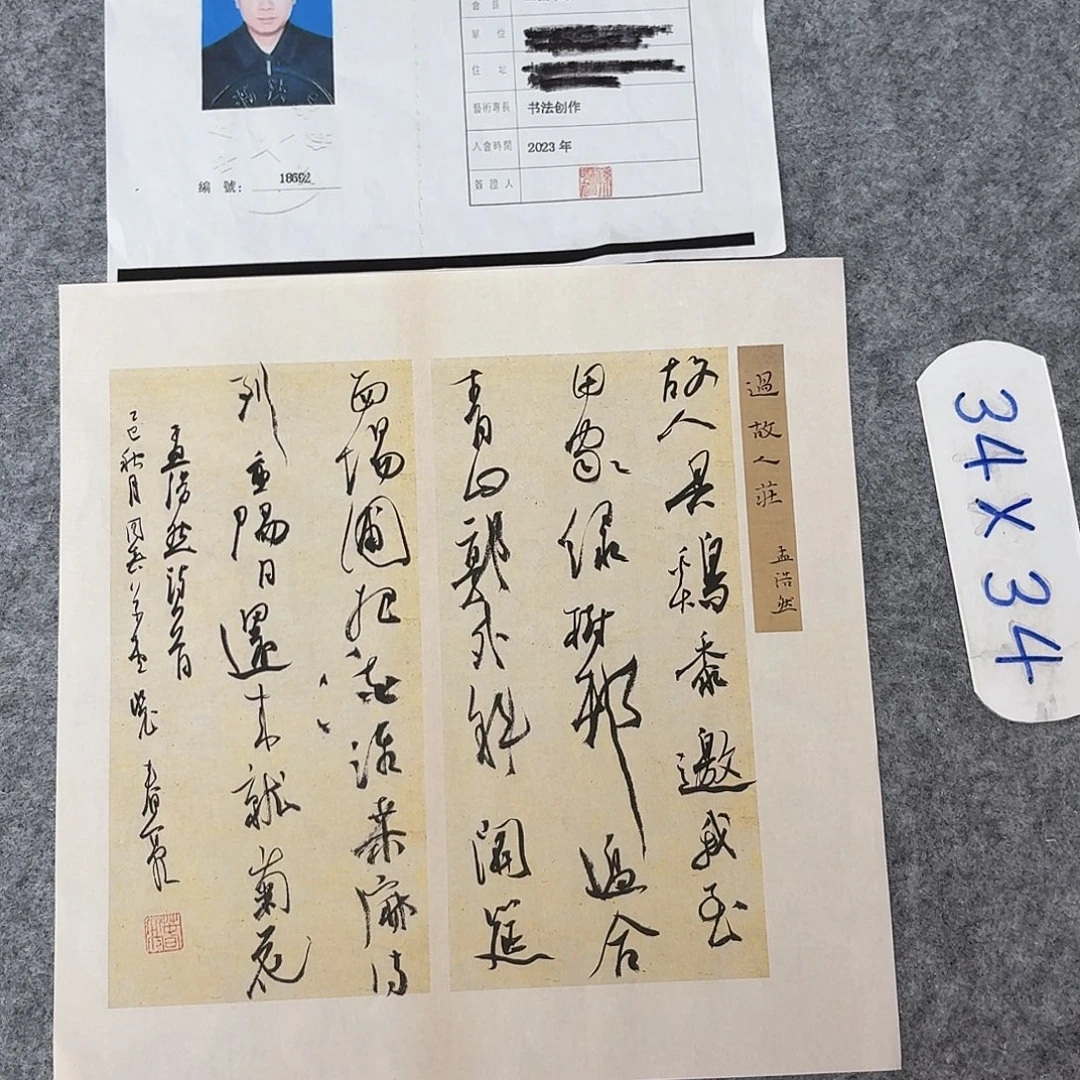 單 位
住 址
藝術專長 书法创作
入會時間 2023 年
簽證人
編 號: 18692
過故人莊 孟浩然
故人具鷄黍邀我至
田家绿樹邨邊合
青山郭外斜開筵
面場圃把酒話桑麻待
到重陽日還来就菊花
孟浩然诗一首
乙巳秋月
34 X 34